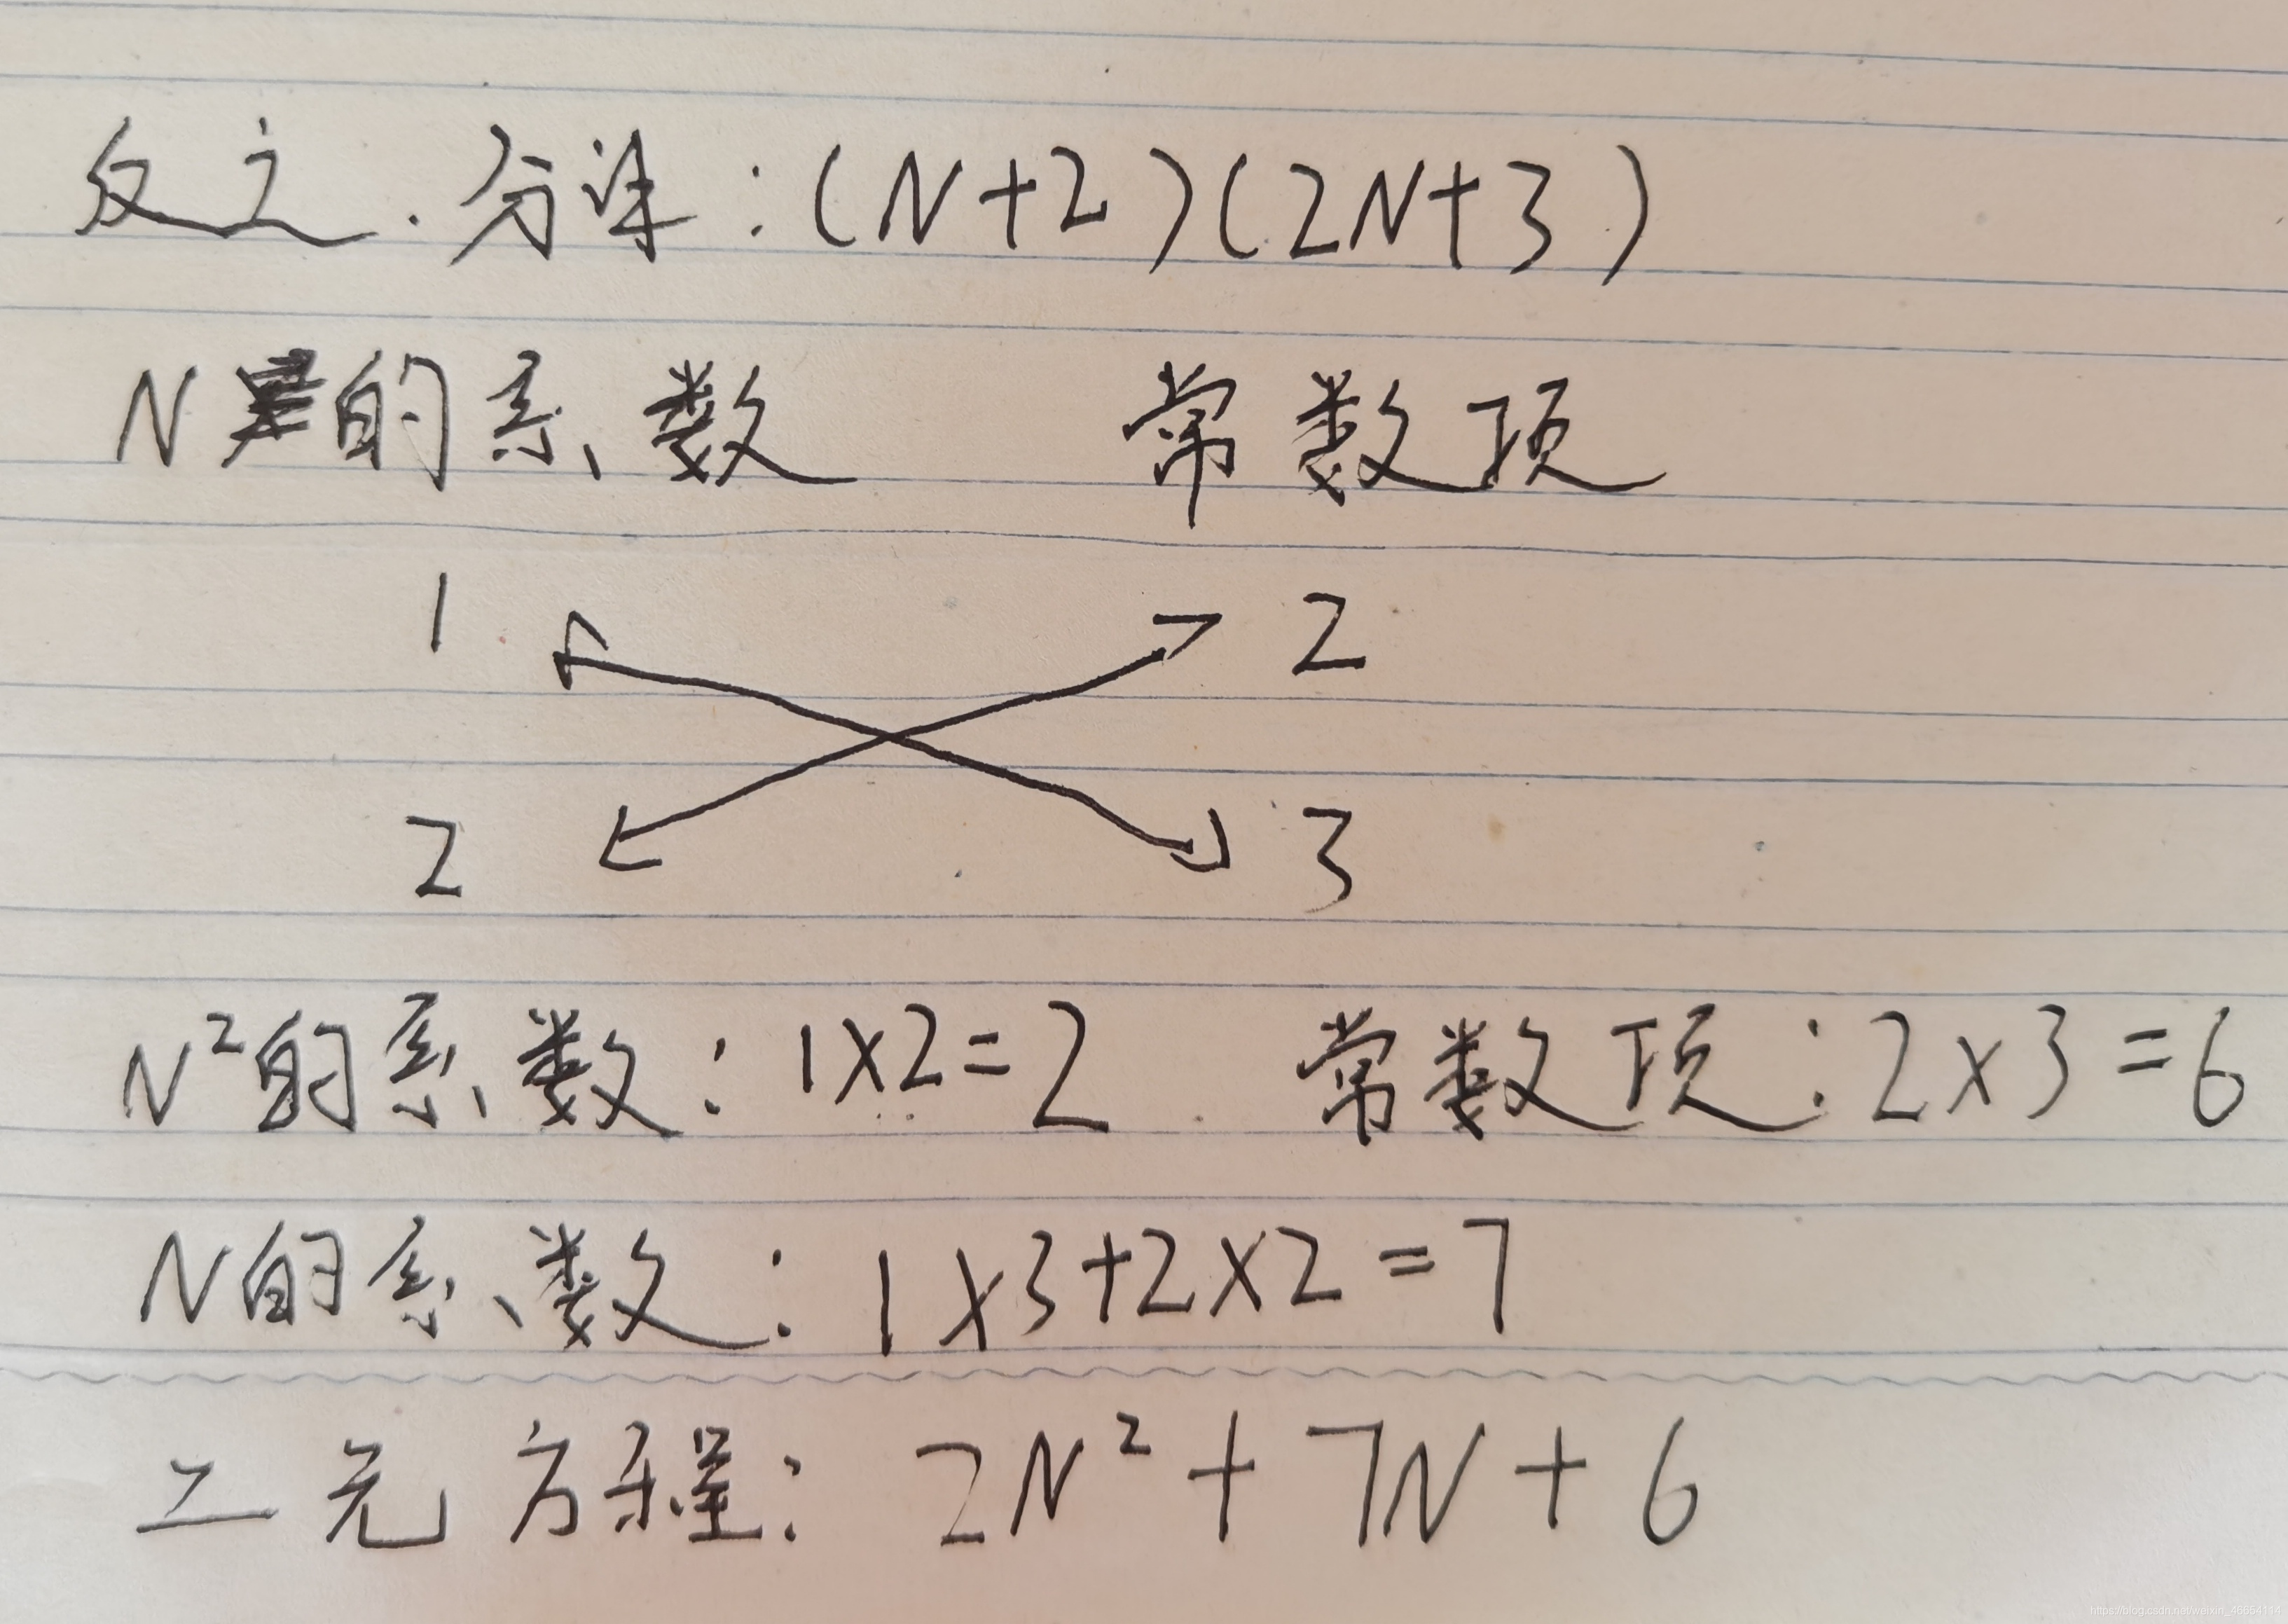 反之.分详:(N+2)(2N+3)
N的系数 常数项
1 2
2 3
N²的系数:1×2=2 常数项:2×3=6
N的系数:1×3+2×2=7
二元方程:2N²+7N+6
https://blog.csdn.net/weixin_46654114